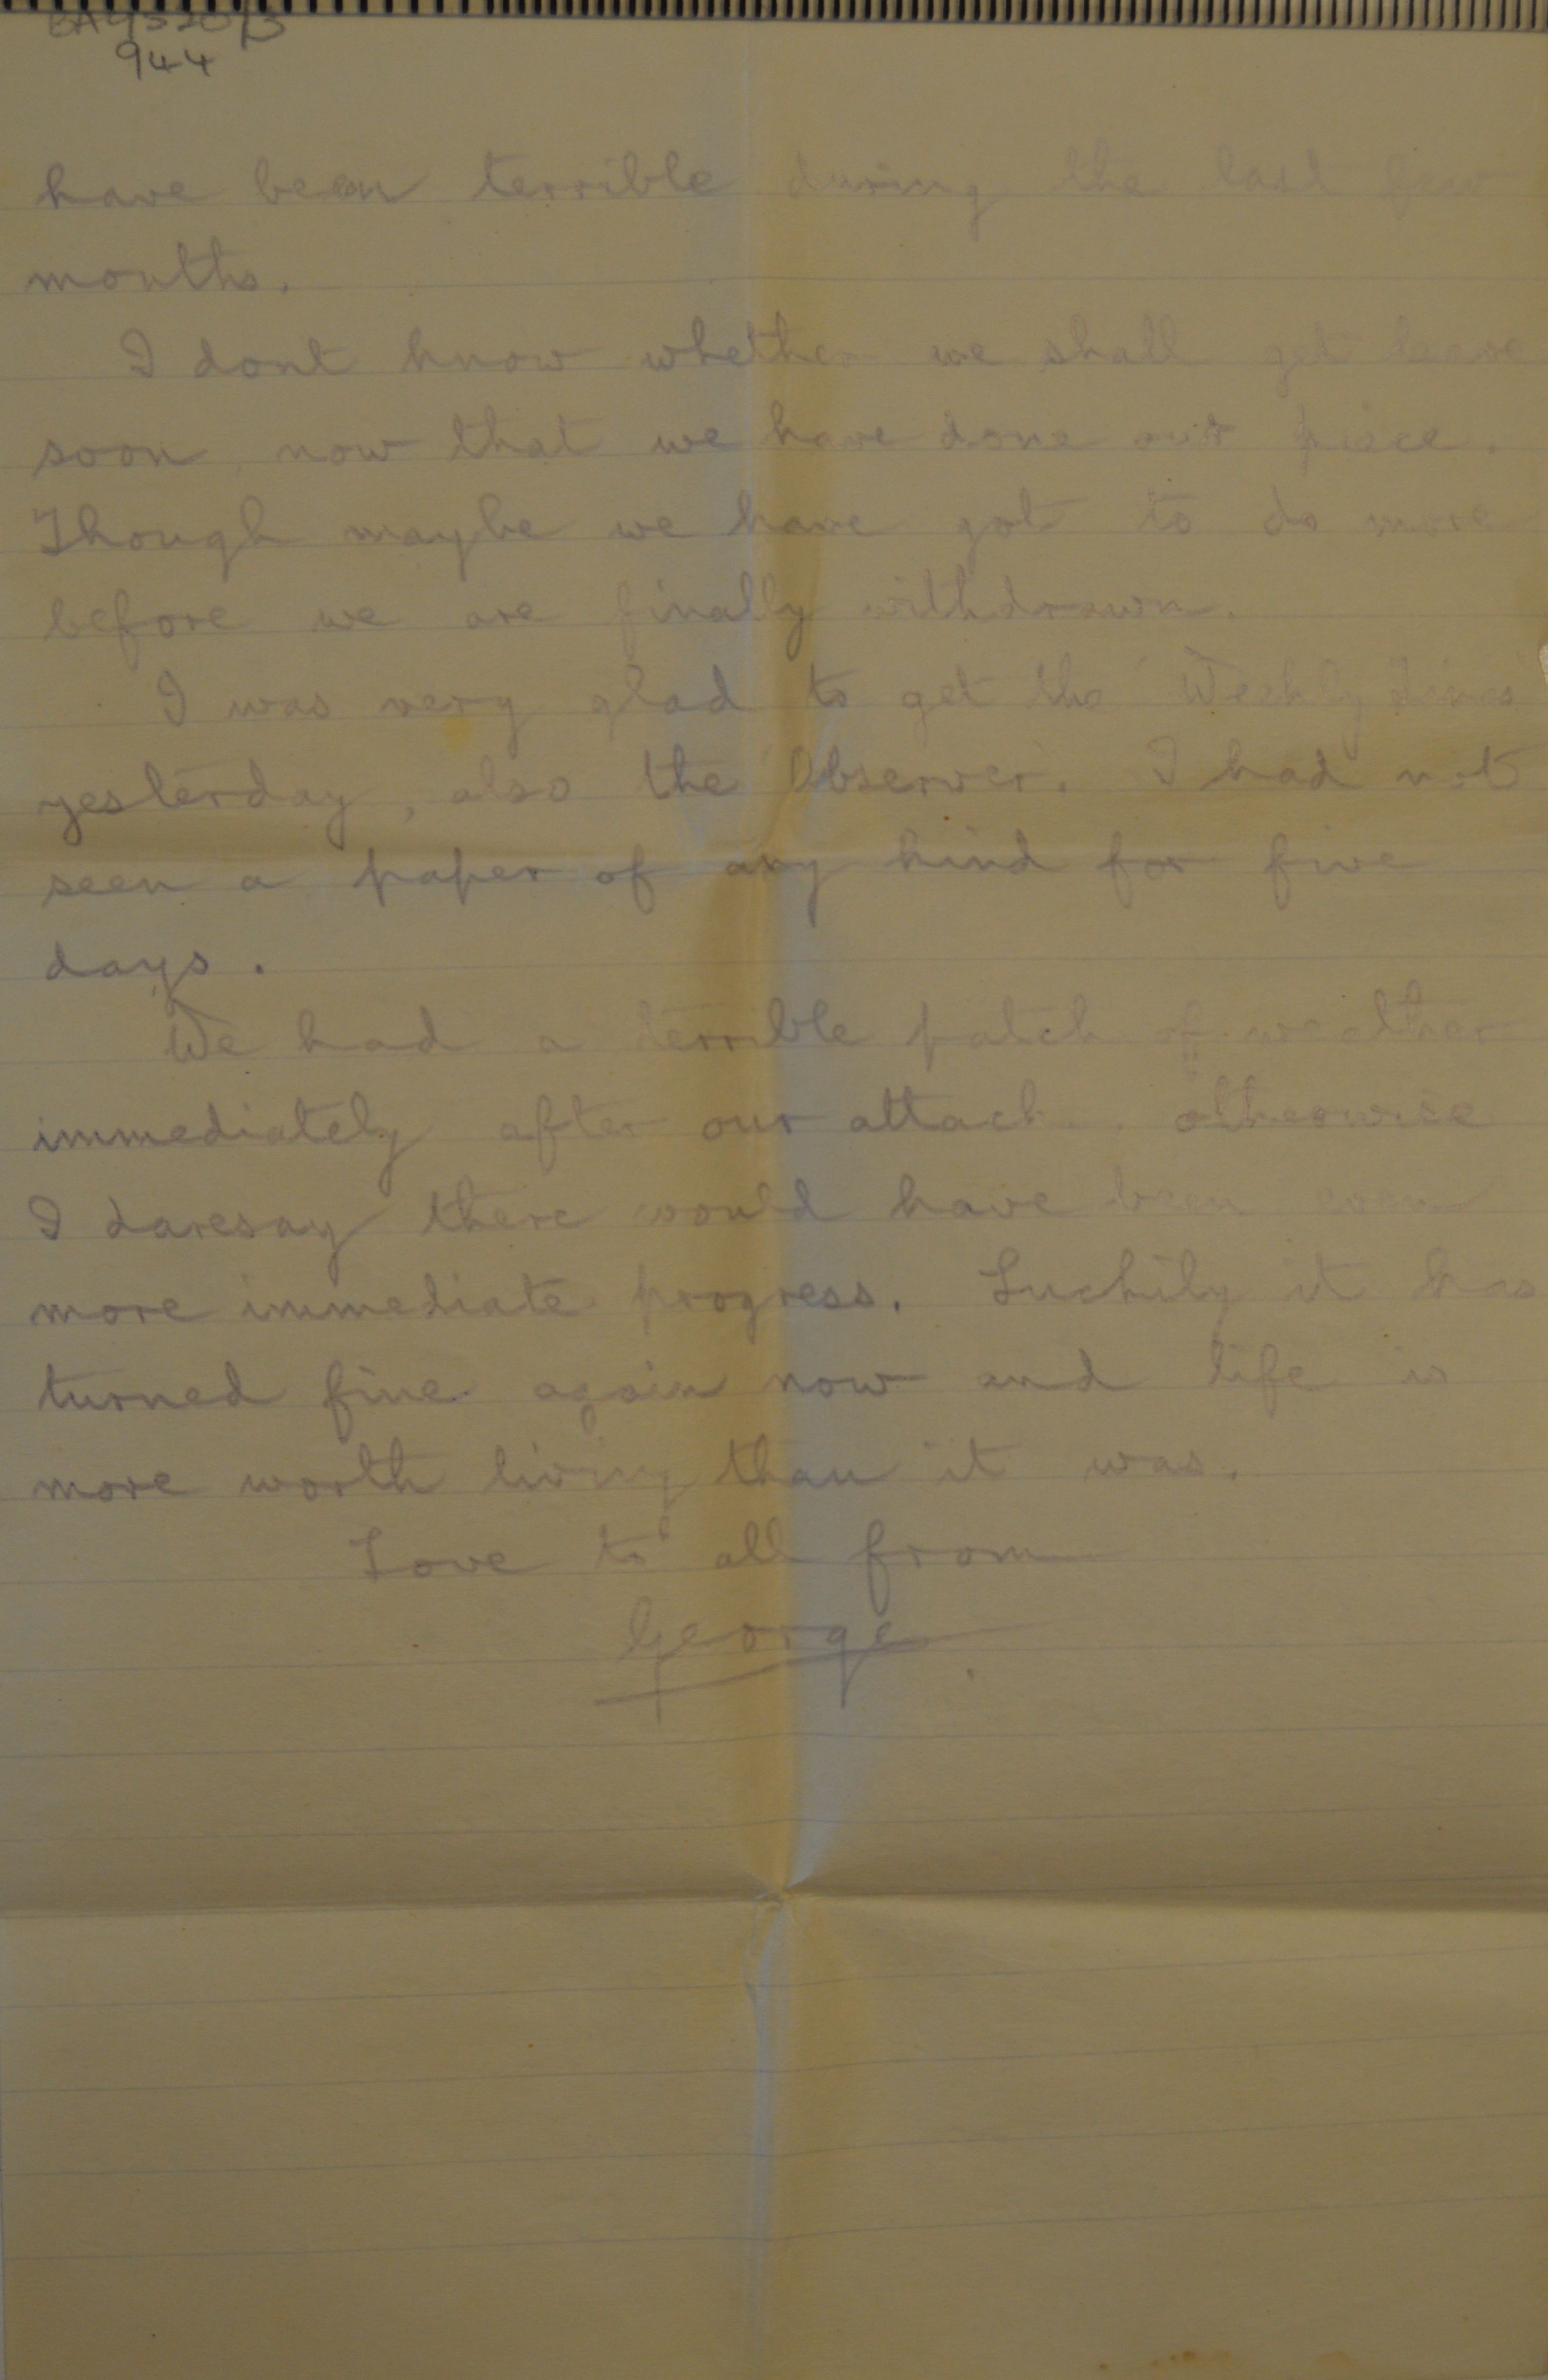 944
have been terrible during the last few
months.
I dont know whether we shall get leave
soon, now that we have done our piece.
Though maybe we have got to do more
before we are finally withdrawn.
I was very glad to get the 'Weekly Times'
yesterday, also the 'Observer'. I had not
seen a paper of any kind for five
days.
We had a terrible patch of weather
immediately after our attack. otherwise
I daresay there would have been even
more immediate progress. Luckily it has
turned fine again now and life is
more worth living than it was.
Love to all from
George